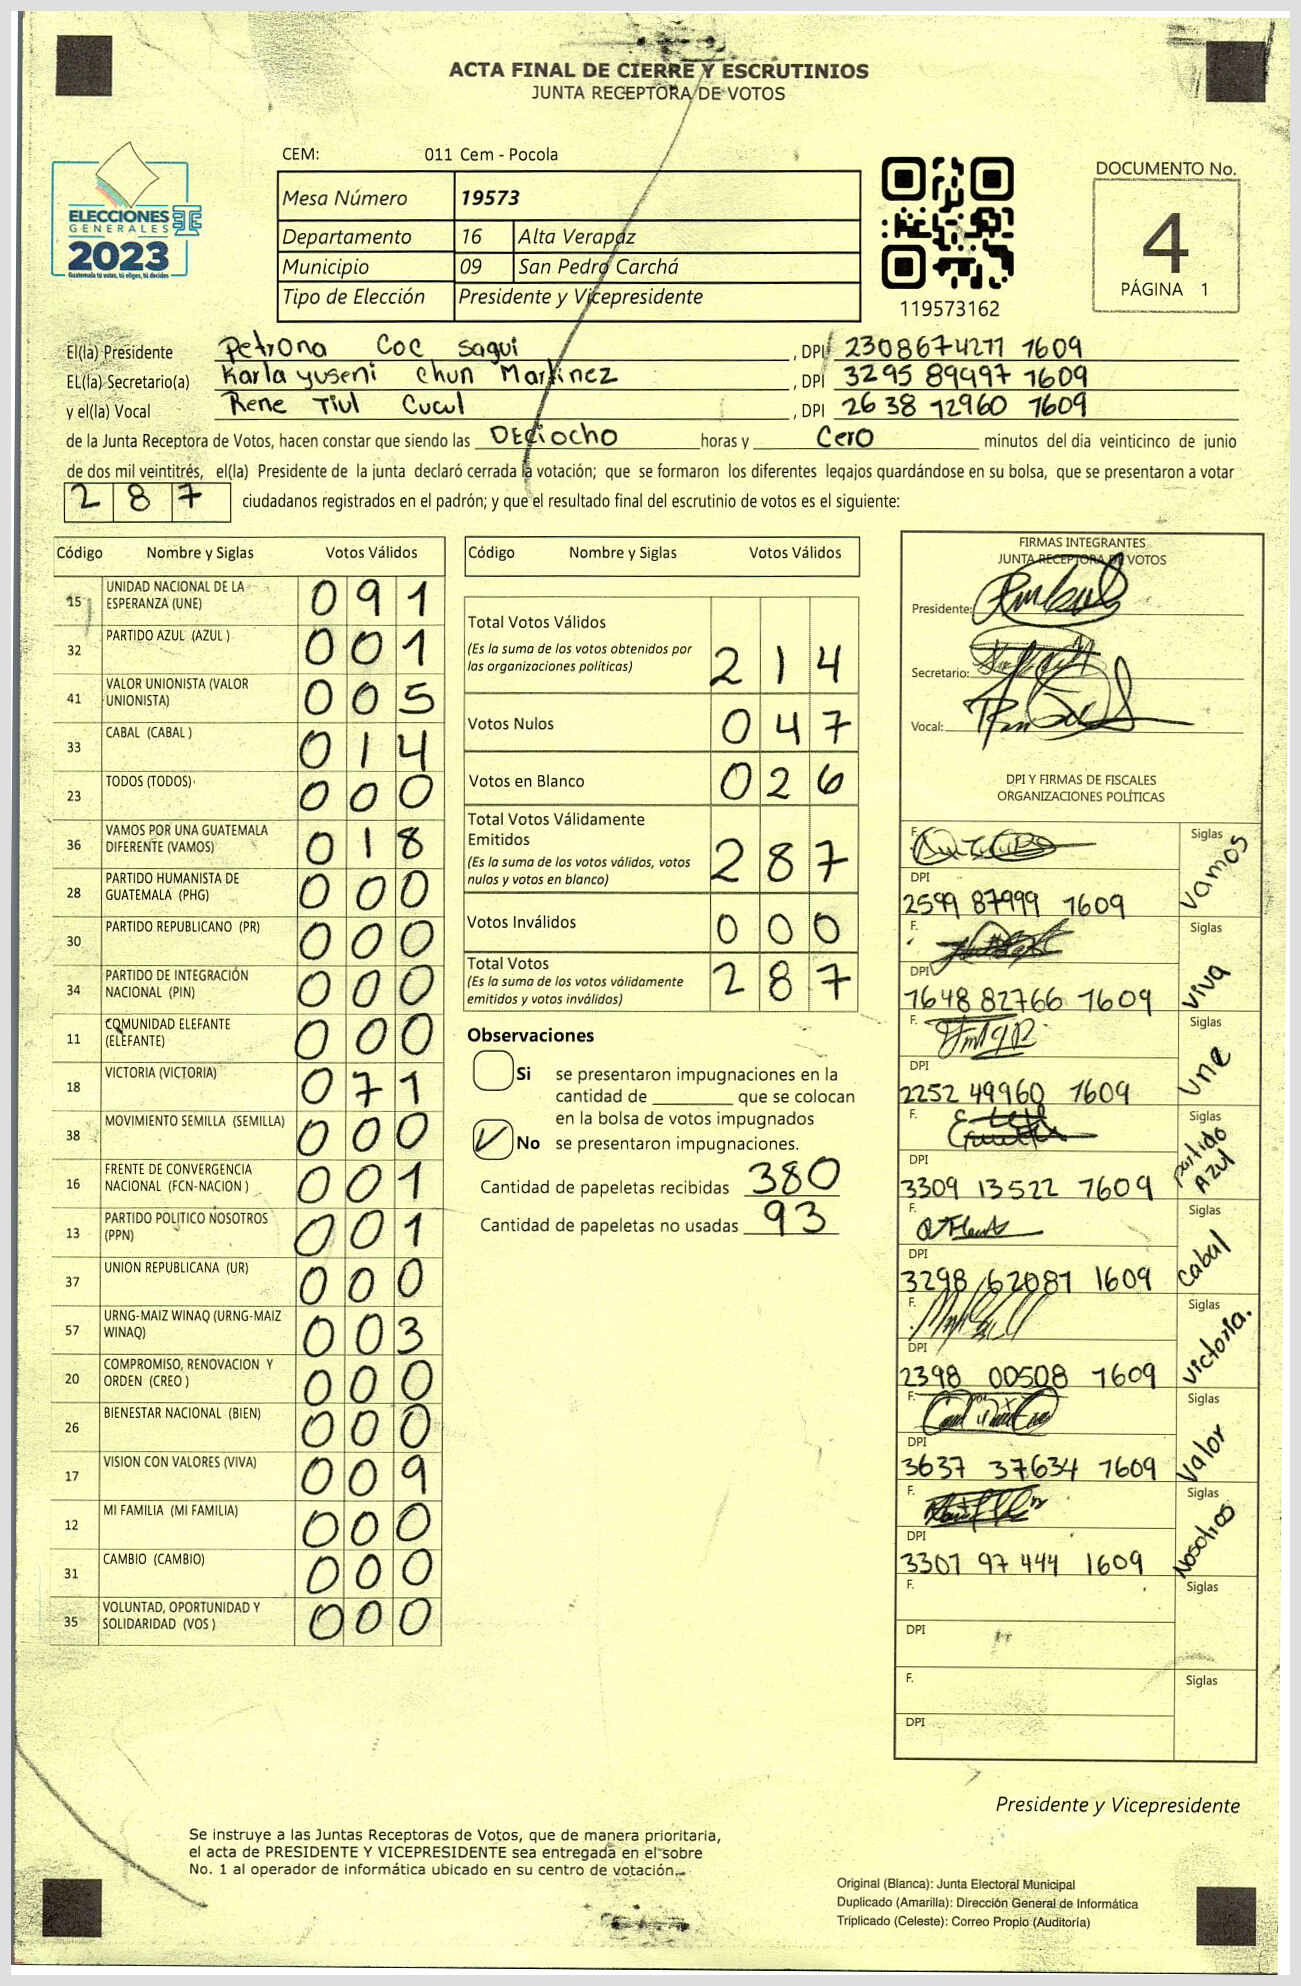 ACTA FINAL DE CIERRE Y ESCRUTINIOS
JUNTA RECEPTORA DE VOTOS
CEM: 011 Cem - Pocola
Mesa Número 19573
Departamento 16 Alta Verapaz
Municipio 09 San Pedro Carchá
Tipo de Elección Presidente y Vicepresidente
ELECCIONES
GENERALES
2023
Guatemala tú votas, tú eliges, tú decides
119573162
DOCUMENTO No.
4
PÁGINA 1
El(la) Presidente Petrona Coc Sagui , DPI 2308674277 1609
EL(la) Secretario(a) Karla yuseni Chun Martinez , DPI 3295 89997 1609
y el(la) Vocal Rene Tiul Cucul , DPI 2638 12960 1609
de la Junta Receptora de Votos, hacen constar que siendo las Deciocho horas y Cero minutos del día veinticinco de junio
de dos mil veintitrés, el(la) Presidente de la junta declaró cerrada la votación; que se formaron los diferentes legajos quardándose en su bolsa, que se presentaron a votar
287 ciudadanos registrados en el padrón; y que el resultado final del escrutinio de votos es el siguiente:
Código Nombre y Siglas Votos Válidos
15 UNIDAD NACIONAL DE LA ESPERANZA (UNE) 091
32 PARTIDO AZUL (AZUL ) 001
41 VALOR UNIONISTA (VALOR UNIONISTA) 005
33 CABAL (CABAL ) 014
23 TODOS (TODOS) 000
36 VAMOS POR UNA GUATEMALA DIFERENTE (VAMOS) 018
28 PARTIDO HUMANISTA DE GUATEMALA (PHG) 000
30 PARTIDO REPUBLICANO (PR) 000
34 PARTIDO DE INTEGRACIÓN NACIONAL (PIN) 000
11 COMUNIDAD ELEFANTE (ELEFANTE) 000
18 VICTORIA (VICTORIA) 071
38 MOVIMIENTO SEMILLA (SEMILLA) 000
16 FRENTE DE CONVERGENCIA NACIONAL (FCN-NACION ) 001
13 PARTIDO POLITICO NOSOTROS (PPN) 001
37 UNION REPUBLICANA (UR) 000
57 URNG-MAIZ WINAQ (URNG-MAIZ WINAQ) 003
20 COMPROMISO, RENOVACION Y ORDEN (CREO ) 000
26 BIENESTAR NACIONAL (BIEN) 000
17 VISION CON VALORES (VIVA) 009
12 MI FAMILIA (MI FAMILIA) 000
31 CAMBIO (CAMBIO) 000
35 VOLUNTAD, OPORTUNIDAD Y SOLIDARIDAD (VOS ) 000
Código Nombre y Siglas Votos Válidos
Total Votos Válidos 214
(Es la suma de los votos obtenidos por
las organizaciones políticas)
Votos Nulos 047
Votos en Blanco 026
Total Votos Válidamente
Emitidos 287
(Es la suma de los votos válidos, votos
nulos y votos en blanco)
Votos Inválidos 000
Total Votos 287
(Es la suma de los votos válidamente
emitidos y votos inválidos)
Observaciones
Si se presentaron impugnaciones en la
cantidad de ________ que se colocan
en la bolsa de votos impugnados
No se presentaron impugnaciones.
Cantidad de papeletas recibidas 380
Cantidad de papeletas no usadas 93
FIRMAS INTEGRANTES
JUNTA RECEPTORA DE VOTOS
Presidente:
Secretario:
Vocal:
DPI Y FIRMAS DE FISCALES
ORGANIZACIONES POLÍTICAS
F. Siglas Vamos
DPI
2599 87999 1609
F. Siglas Viva
DPI
1648 82766 1609
F. Siglas Une
DPI
2252 49960 1609
F. Siglas partido Azul
DPI
3309 13522 1609
F. Siglas Cabal
DPI
3298 62087 1609
F. Siglas Victoria.
DPI
2398 00508 1609
F. Siglas Valor
DPI
3637 37634 1609
F. Siglas Nosotros
DPI
3307 97 444 1609
F. Siglas
DPI
F. Siglas
DPI
Presidente y Vicepresidente
Se instruye a las Juntas Receptoras de Votos, que de manera prioritaria,
el acta de PRESIDENTE Y VICEPRESIDENTE sea entregada en el sobre
No. 1 al operador de informática ubicado en su centro de votación.
Original (Blanca): Junta Electoral Municipal
Duplicado (Amarilla): Dirección General de Informática
Triplicado (Celeste): Correo Propio (Auditoría)